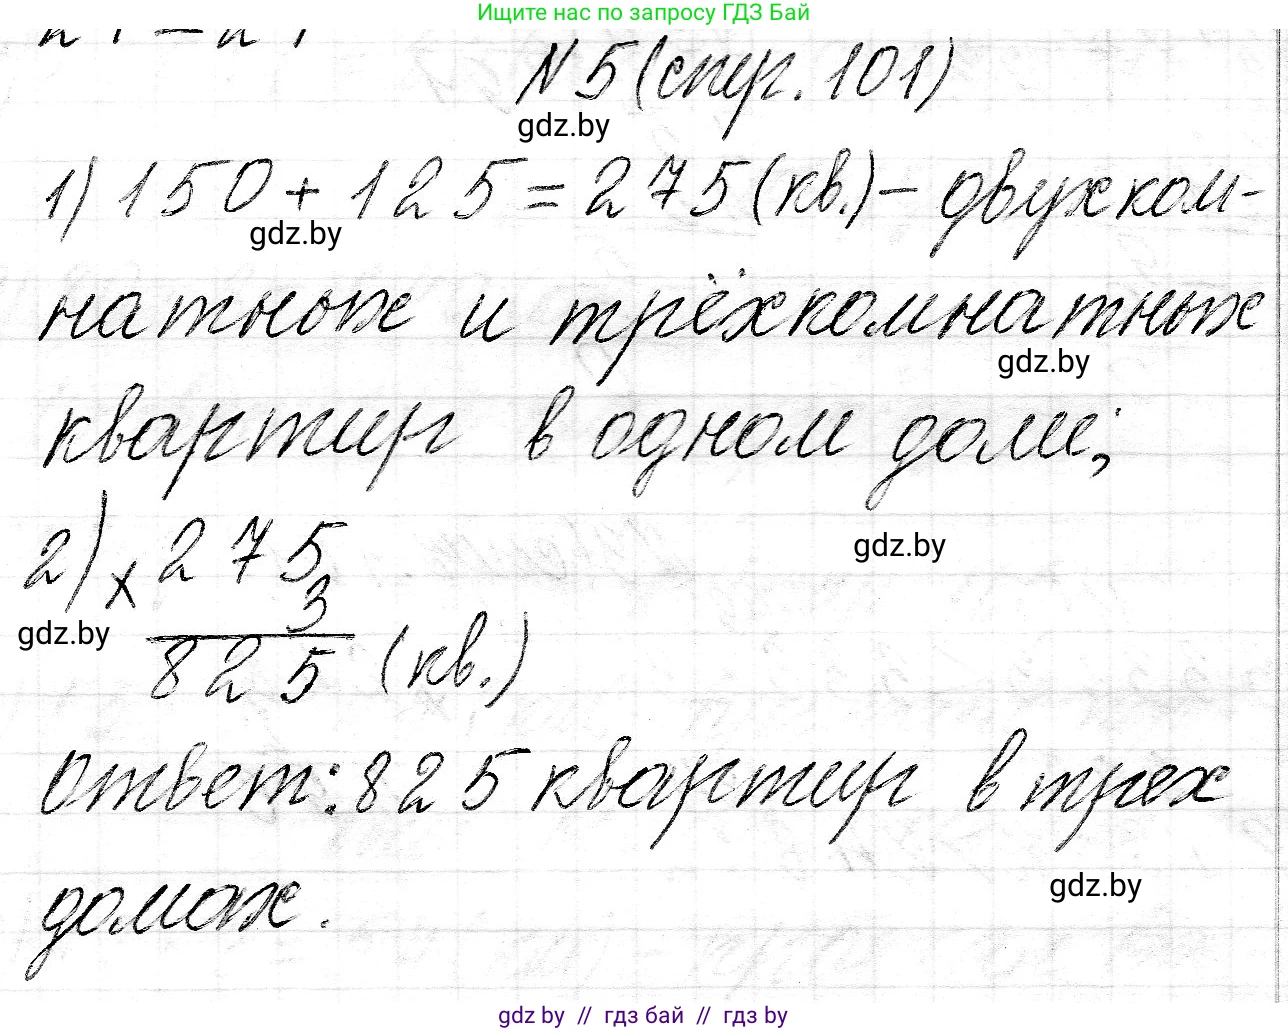 Ищите нас по запросу ГДЗ Бай
N 5 (стр. 101)
gdz.by
1) 150 + 125 = 275 (кв.) – двухком-
gdz.by
натных и трёхкомнатных
gdz.by
квартир в одном доме;
2) × 275
gdz.by
3
gdz.by
825 (кв.)
Ответ: 825 квартир в трех
gdz.by
домах.
gdz.by // гдз бай // гдз by